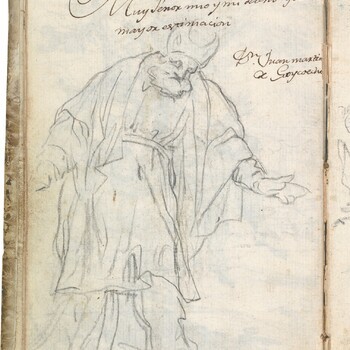 Muy Señor mio y mi
mayor estimacion
Dn. Juan martin
de Goycochea